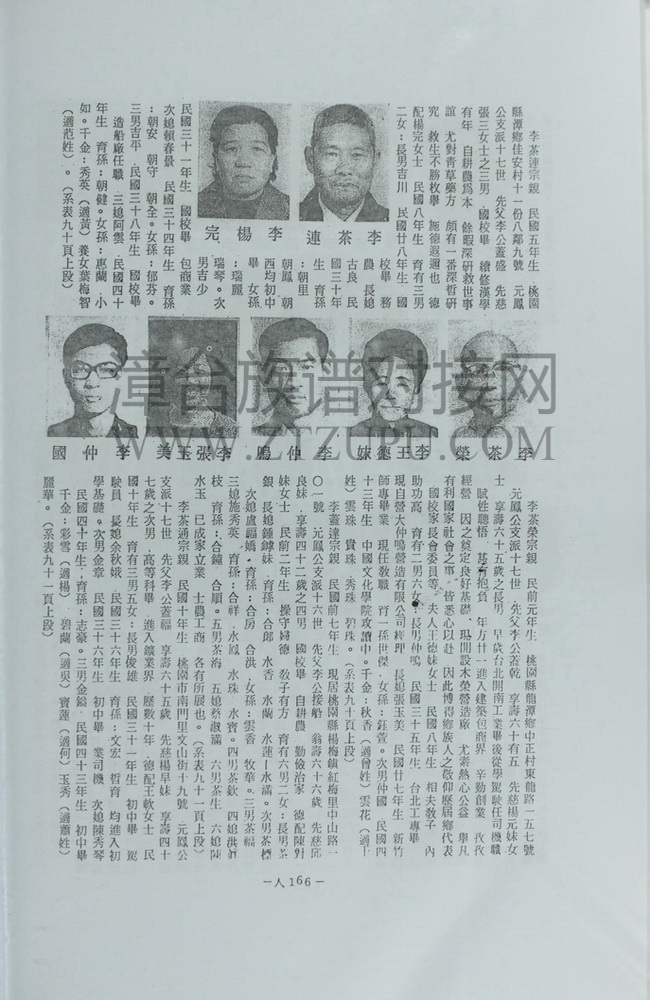 李茶連宗親 民國五年生 桃園
縣潭鄉佳安村十一份八鄰九號 元鳳
公支派十七世 先父李公蓋盛 先慈
張三女士之三男 國校畢 續修漢學
有年 自耕農爲本 餘暇深研救世事
誼 尤對青草藥方 頗有一番深哲研
究 救生不勝枚擧 施德遐邇也 德
配楊完女士 民國八年生 育有三男
二女：長男吉川 民國廿八年生 國
校畢 務
農 長媳
古良 民
國三十年
生 育孫
：朝里
朝鳳 朝
西均初中
畢 女孫
：瑞麗
瑞琴。次
男吉少
民國三十一年生 國校畢 包商業
次媳賴春景 民國三十四年生 育孫
：朝安 朝守 朝全。女孫：郁芬。
三男吉平 民國三十八年生 國校畢
造船廠任職 三媳阿雲 民國四十
年生 育孫：朝健。女孫：惠蘭 小
如。千金：秀英（適黃）養女葉梅智
（適范姓）。（系表九十頁上段）
李茶連
李楊完
李茶榮
李王德妹
李仲鳴
李張玉美
李仲國
李茶榮宗親 民前元年生 桃園縣龍潭鄉中正村東龍路一五七號
元鳳公支派十七世 先父李公蓋乾 享壽六十有五 先慈楊元妹女
士 享壽六十五歲之長男 早歲台北開南工業畢後從學駕駛任司機職
賦性聰悟 甚有抱負 年方廿一進入建築包商界 辛勤創業 孜孜
經營 因之奠定良好基礎、現開設木榮營造廠 尤素熱心公益 擧凡
有利國家社會之事 皆悉心以赴 因此博得鄉族人之敬仰歷屆鄉代表
國校家長會委員等 夫人王德妹女士 民國八年生 相夫敎子 內
助功高 育有二男六女：長男仲鳴 民國三十五年生 台北工專畢
現自營大仲鳴營造有限公司經理 長媳張玉美 民國廿七年生 新竹
師專畢業 現任敎職 育一孫世傑，女孫：鈺萱。次男仲國 民國四
十三年生 中國文化學院攻讀中。千金：秋香（適曾姓）雲花（適
姓）雲珠 貴珠 秀珠 碧珠。（系表九十頁上段）
李蓋連宗親 民國前七年生 現居桃園縣楊梅鎮紅梅里中山路一
〇一號 元鳳公支派十六世 先父李公接船 翁壽六十六歲 先慈邱
良妹 享壽四十二歲之四男 國校畢 自耕農 勤儉治家 德配陳對
妹女士 民前二年生 操守婦德 敎子有方 育有六男二女：長男茶
銀 長媳鍾 妹 育孫：合郎 水香 水蘭 水蓮 水滿。次男茶標
次媳盧福嬌 育孫：合房 合洪 女孫：雲香 牧華。三男茶福
三媳施秀英 育孫：合祥 水鳳 水珠 水賓。四男茶欽 四媳洪
枝 育孫：合鐘 合順。五男茶海 五媳蔡淑滿 六男茶生 六媳陳
水玉 已成家立業 士農工商 各有所展也。（系表九十一頁上段）
李茶通宗親 民國十年生 桃園市南門里文山街十九號 元鳳公
支派十七世 先父李公蓋福 享壽六十五歲 先慈楊早妹 享壽四十
七歲之次男 高等科畢 進入鑛業界 歷數十年，德配王軟女士 民
國十年生 育有三男五女：長男俊雄 民國三十一年生 初中畢 駕
駛員 長媳余秋娥 民國三十六年生 育孫：文宏 哲育 均進入初
學基礎。次男金章 民國三十六年生 初中畢 業司機 次媳陳秀琴
民國四十年生，育孫：志豪。三男金鎰 民國四十三年生 初中畢
千金：彩雪（適楊） 碧蘭（適吳）寶蓮（適何）玉秀（適蕭姓）
麗華。（系表九十一頁上段）
－人166－
漳台族谱对接网
WWW.ZTZUPU.COM